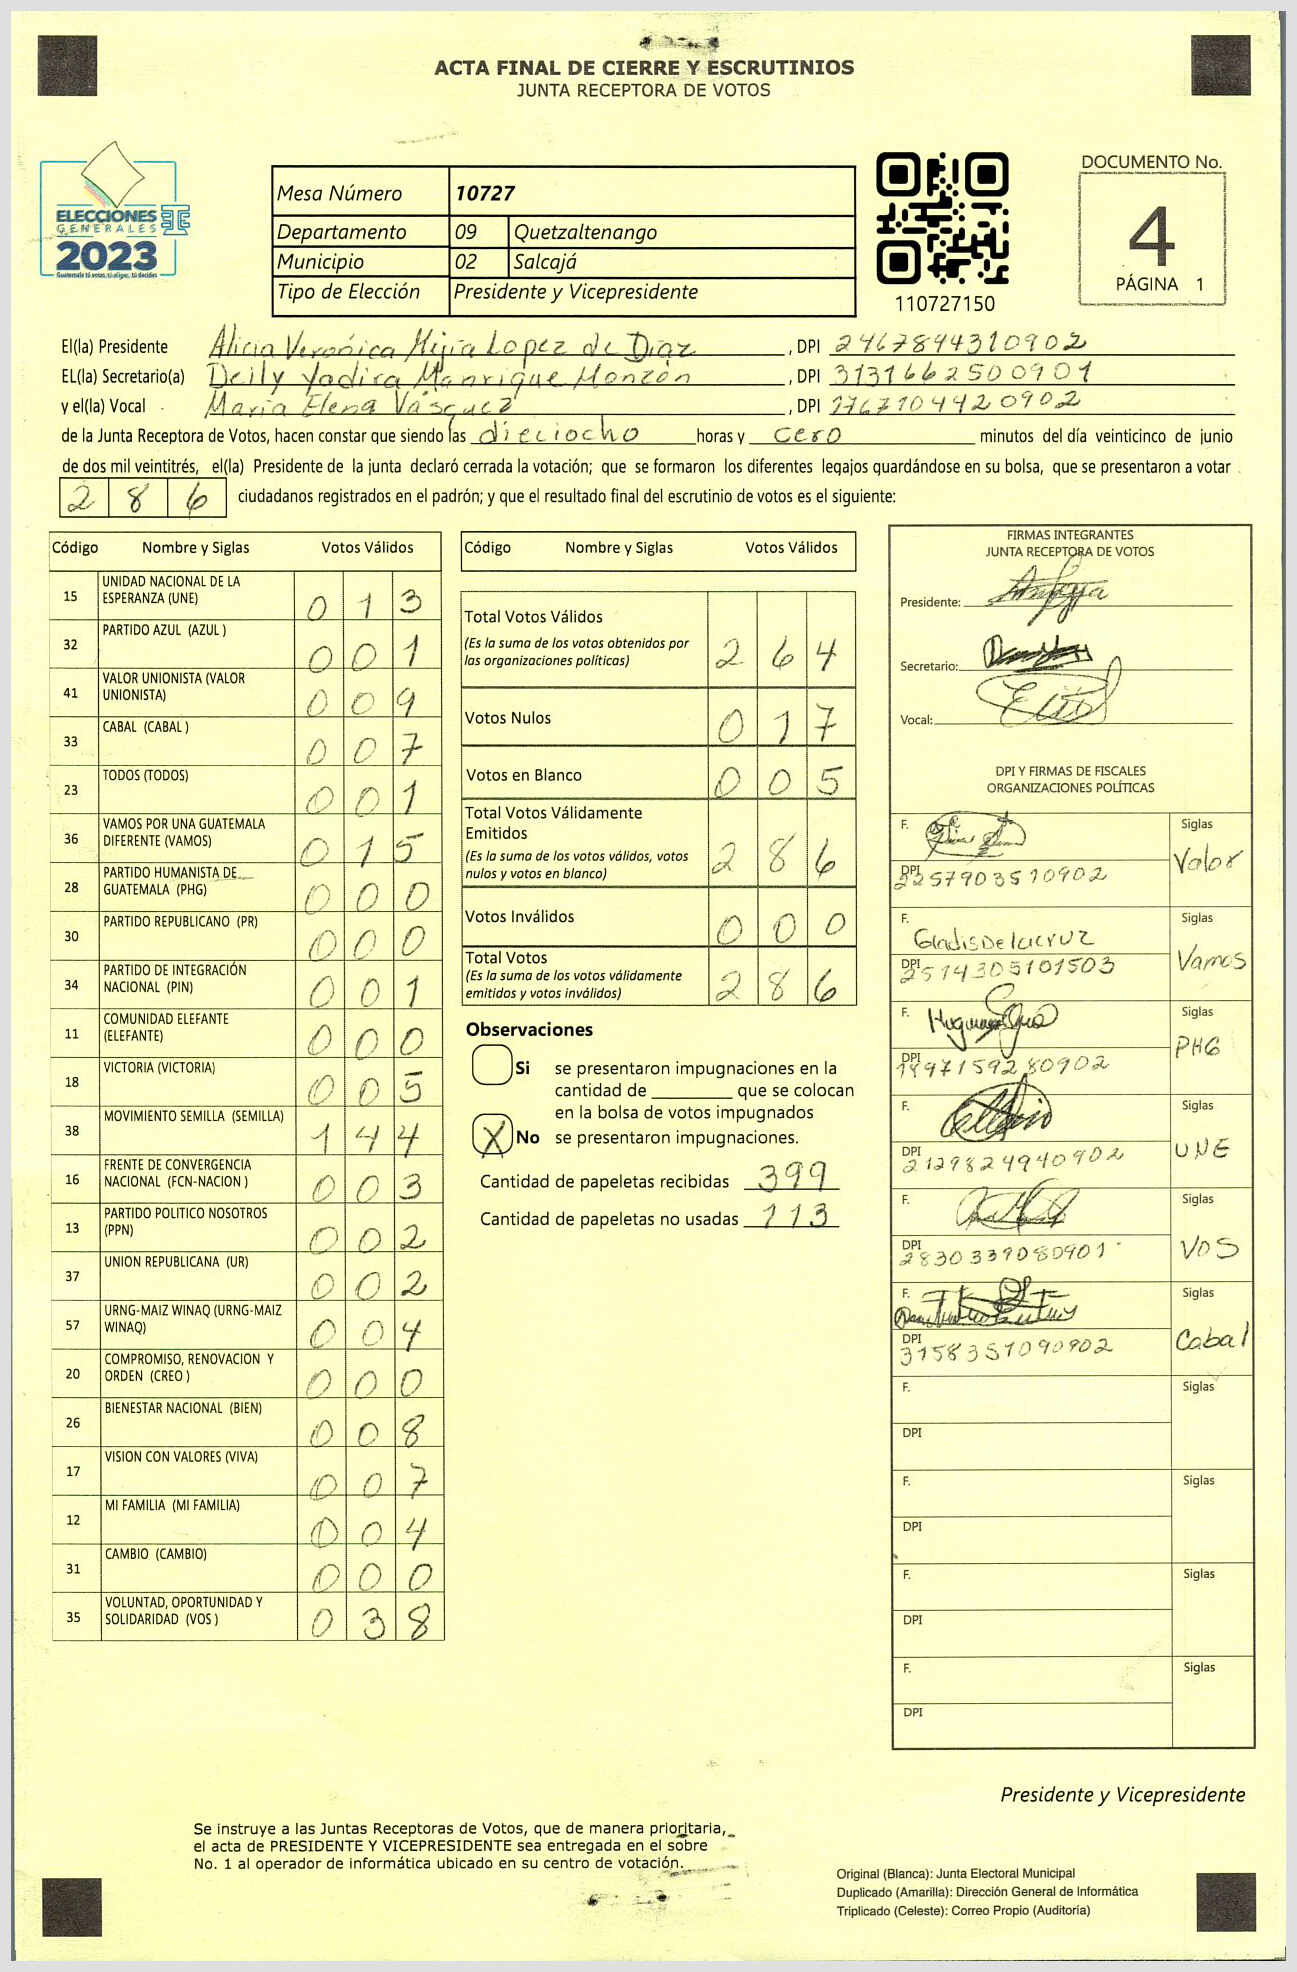 ACTA FINAL DE CIERRE Y ESCRUTINIOS
JUNTA RECEPTORA DE VOTOS
ELECCIONES
GENERALES
2023
Guatemala tú votas, tú eliges, tú decides
Mesa Número 10727
Departamento 09 Quetzaltenango
Municipio 02 Salcajá
Tipo de Elección Presidente y Vicepresidente
110727150
DOCUMENTO No.
4
PÁGINA 1
El(la) Presidente Alicia Verónica Mijía Lopez de Diaz, DPI 2467844310902
EL(la) Secretario(a) Deily Yadira Manrique Monzón, DPI 3131662500901
y el(la) Vocal María Elena Vásquez, DPI 1767104420902
de la Junta Receptora de Votos, hacen constar que siendo las dieciocho horas y cero minutos del día veinticinco de junio
de dos mil veintitrés, el(la) Presidente de la junta declaró cerrada la votación; que se formaron los diferentes legajos guardándose en su bolsa, que se presentaron a votar
286 ciudadanos registrados en el padrón; y que el resultado final del escrutinio de votos es el siguiente:
Código Nombre y Siglas Votos Válidos
15 UNIDAD NACIONAL DE LA ESPERANZA (UNE) 013
32 PARTIDO AZUL (AZUL ) 001
41 VALOR UNIONISTA (VALOR UNIONISTA) 009
33 CABAL (CABAL ) 007
23 TODOS (TODOS) 001
36 VAMOS POR UNA GUATEMALA DIFERENTE (VAMOS) 015
28 PARTIDO HUMANISTA DE GUATEMALA (PHG) 000
30 PARTIDO REPUBLICANO (PR) 000
34 PARTIDO DE INTEGRACIÓN NACIONAL (PIN) 001
11 COMUNIDAD ELEFANTE (ELEFANTE) 000
18 VICTORIA (VICTORIA) 005
38 MOVIMIENTO SEMILLA (SEMILLA) 144
16 FRENTE DE CONVERGENCIA NACIONAL (FCN-NACION ) 003
13 PARTIDO POLITICO NOSOTROS (PPN) 002
37 UNION REPUBLICANA (UR) 002
57 URNG-MAIZ WINAQ (URNG-MAIZ WINAQ) 004
20 COMPROMISO, RENOVACION Y ORDEN (CREO ) 000
26 BIENESTAR NACIONAL (BIEN) 008
17 VISION CON VALORES (VIVA) 007
12 MI FAMILIA (MI FAMILIA) 004
31 CAMBIO (CAMBIO) 000
35 VOLUNTAD, OPORTUNIDAD Y SOLIDARIDAD (VOS ) 038
Código Nombre y Siglas Votos Válidos
Total Votos Válidos 264
(Es la suma de los votos obtenidos por
las organizaciones políticas)
Votos Nulos 017
Votos en Blanco 005
Total Votos Válidamente
Emitidos 286
(Es la suma de los votos válidos, votos
nulos y votos en blanco)
Votos Inválidos 000
Total Votos 286
(Es la suma de los votos válidamente
emitidos y votos inválidos)
Observaciones
Si se presentaron impugnaciones en la
cantidad de ________ que se colocan
en la bolsa de votos impugnados
X No se presentaron impugnaciones.
Cantidad de papeletas recibidas 399
Cantidad de papeletas no usadas 113
FIRMAS INTEGRANTES
JUNTA RECEPTORA DE VOTOS
Presidente:
Secretario:
Vocal:
DPI Y FIRMAS DE FISCALES
ORGANIZACIONES POLÍTICAS
F. Siglas
DPI 2257903510902 Valor
F. Gladis De la cruz Siglas
DPI 2514305101503 Vamos
F. Siglas
DPI 1997159280902 PHG
F. Siglas
DPI 2129824940902 UNE
F. Siglas
DPI 2830339080901 VOS
F. Siglas
DPI 3158351090902 Cabal
F. Siglas
DPI
F. Siglas
DPI
F. Siglas
DPI
F. Siglas
DPI
Presidente y Vicepresidente
Se instruye a las Juntas Receptoras de Votos, que de manera prioritaria,
el acta de PRESIDENTE Y VICEPRESIDENTE sea entregada en el sobre
No. 1 al operador de informática ubicado en su centro de votación.
Original (Blanca): Junta Electoral Municipal
Duplicado (Amarilla): Dirección General de Informática
Triplicado (Celeste): Correo Propio (Auditoría)